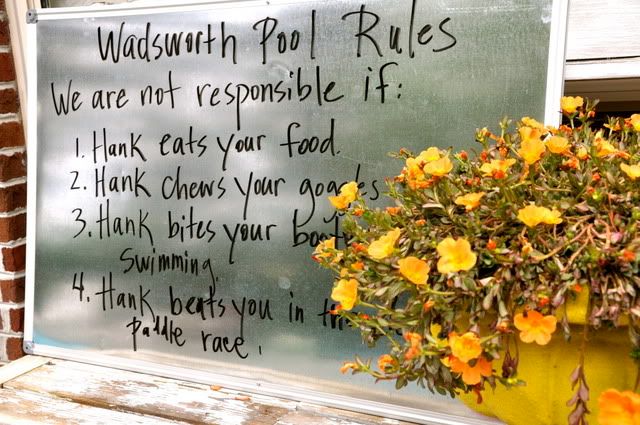 Wadsworth Pool Rules
We are not responsible if:
1. Hank eats your food.
2. Hank chews your
3. Hank bites your
swimming.
4. Hank beats you in
Paddle race.